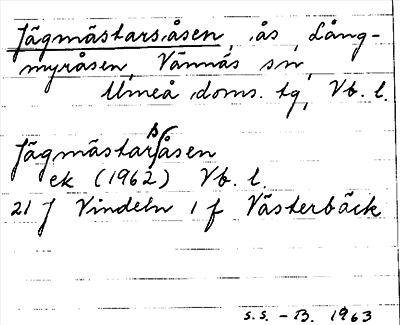 Jägmästarsåsen, ås, Lång-
myråsen, Vännäs sn,
Umeå doms. tg, Vb. l.
Jägmästarsåsen
ek (1962) Vb. l.
21 J Vindeln 1 f Västerbäck
s.s. - B. 1963